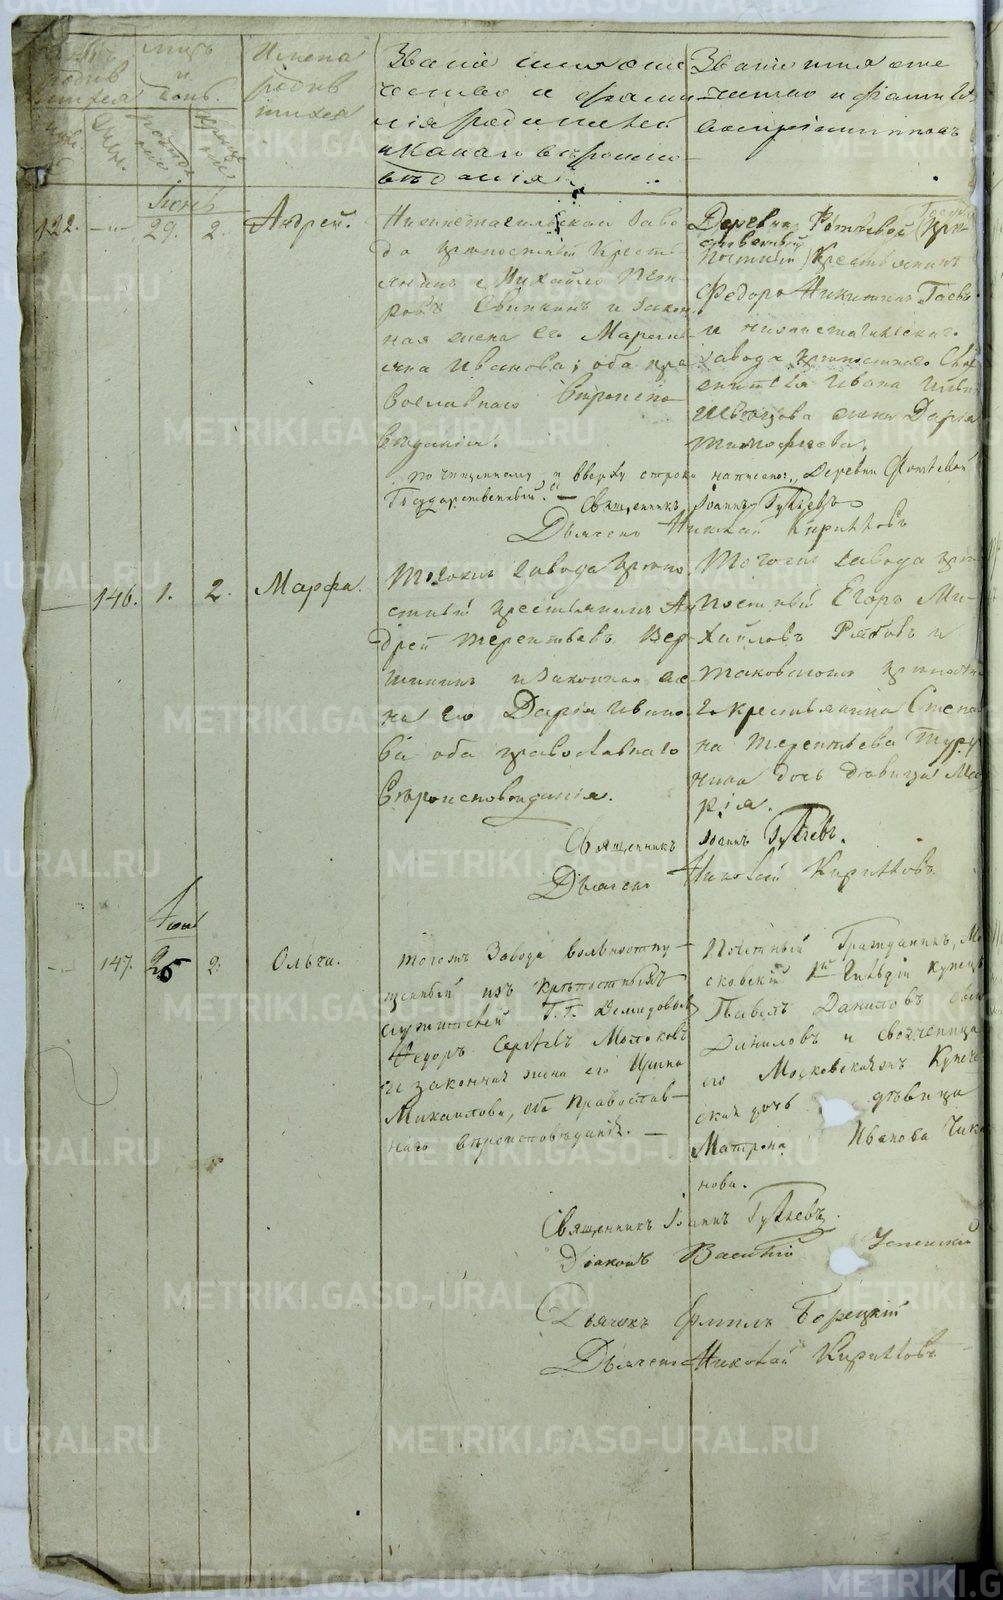 Имена родив шихся
Званіе имя оте чество и фами лія родителей и какаго вѣроиспо вѣданія
Званіе имя оте чество и фамилія воспріемниковъ
Іюнь
122. 29. 2. Андрей.
Нижнетагильскаго Заво
да крѣпостный кресть
янинъ Михайло Пет
ровъ Свинкинъ и закон
ная жена его Марем
яна Иванова; оба пра
вославнаго Вѣроиспо
вѣданія.
Деревни Фотѣевой
Государственный
Крестьянинъ
Федоръ Никитинъ Гаевъ
и нижнетагильскаго
завода крѣпостнаго
Ивана
Швецова жена Дарья
Тимофѣева.
По чищенному и вверху строки написано: „Деревни Фотѣевой
Государственный." —
Священникъ Іоаннъ
Дьячекъ Николай Кирилловъ
146. 1. 2. Марфа.
Тогожъ завода крѣпо
стный крестьянинъ Ан
дрей Терентьевъ Вер
шининъ и законная же
на его Дарья Ивано
ва оба православнаго
Вѣроисповѣданія.
Тогожъ завода крѣ
постный Егоръ Ми
хайловъ Рябовъ и
таковскаго крѣпостна
го крестьянина Степа
на Терентьева
дочь дѣвица Ма
рія.
Священникъ Іоаннъ
Дьячекъ Николай Кирилловъ
147. 26 2. Ольга.
тогожъ Завода вольноотпу
щенный изъ крѣпостныхъ
служителей Г.Г. Демидовыхъ
Федоръ Сергѣевъ Молоковъ
и законная жена его Ирина
Михайлова, оба Православ
наго вѣроисповѣданія. —
Почетный Гражданинъ, Мо
сковскій 1й Гильдіи Купецъ
Павелъ Даниловъ
Даниловъ и свояченица
его Московская Купече
ская дочь дѣвица
Матрона Иванова Чика
нова.
Священникъ Іоаннъ
Діаконъ Василій Успенскій
Дьячекъ Ермилъ Борецкій
Дьячекъ Николай Кирилловъ
METRIKI.GASO-URAL.RU